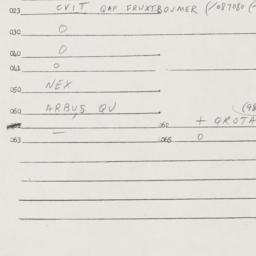 023 CVIT QAP FRUXTBOUMER (1087080
030 O
040 O
041 O
050 NEX
(98
060 ARBUS QU 060 + GROTA
—
063 065 O